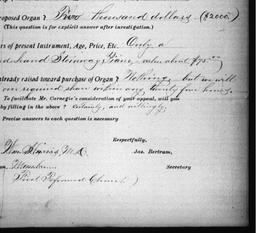 roposed Organ? Two thousand dollars ($2000)
(This question is for explicit answer after investigation.)
rs of present Instrument, Age, Price, Etc. Only a
hand Steinway Piano, value about $75
already raised toward purchase of Organ? Nothing, but we will
our required share within any twenty five
To facilitate Mr. Carnegie's consideration of your appeal, will you
by filling in the above? Certainly, and willingly,
Precise answers to each question is necessary
Respectfully,
Jas. Bertram,
Secretary
First Reformed Church)